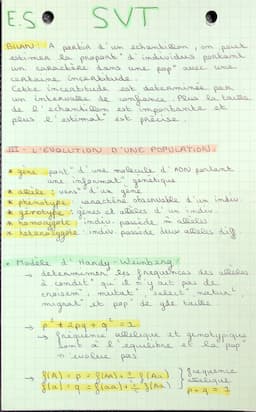 E.S SVT
BILAN : A partir d'un échantillon, on peut
estimer la proport° d'individus portant
un caractère dans une pop° avec une
certaine incertitude.
Cette incertitude est déterminée par
un intervalle de confiance. Plus la taille
de l'échantillon est importante et
plus l'estimat° est précise.
III - L'ÉVOLUTION D'UNE POPULATION :
* gène : part° d'une molécule d'ADN portant
une informat° génétique
* allèle : vers° d'un gène
* phénotype : caractère observable d'un indiv.
* génotype : gènes et allèles d'un indiv.
* homozygote : indiv. possède m allèles
* hétérozygote : indiv. possède deux allèles diff
• Modèle d'Hardy-Weinberg :
→ déterminer les fréquences des allèles
à condit° qu'il n'y ait pas de
croisem^t, mutat°, sélect° naturel
migrat° et pop° de gde taille
→ p² + 2pq + q² = 1
↳ fréquence allélique et génotypique
sont à l'équilibre et la pop°
n'évolue pas
→ f(A) = p = f(AA) + ½ f(Aa) } fréquence
f(a) = q = f(aa) + ½ f(Aa) } allélique
p + q = 1